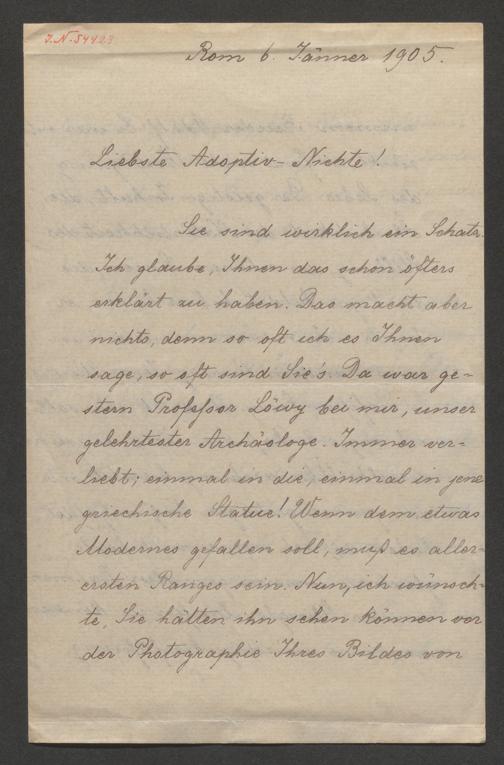 J.N. 54423
Rom 6. Jänner 1905.
Liebste Adoptiv-Nichte!
Sie sind wirklich ein Schatz.
Ich glaube, Ihnen das schon öfters
erklärt zu haben. Das macht aber
nichts, denn so oft ich es Ihnen
sage, so oft sind Sie's. Da war ge-
stern Professor Löwy bei mir, unser
gelehrtester Archäologe. Immer ver-
liebt; einmal in die, einmal in jene
griechische Statue! Wenn dem etwas
Modernes gefallen soll, muß es aller-
ersten Ranges sein. Nun, ich wünsch-
te, Sie hätten ihn sehen können vor
der Photographie Ihres Bildes von